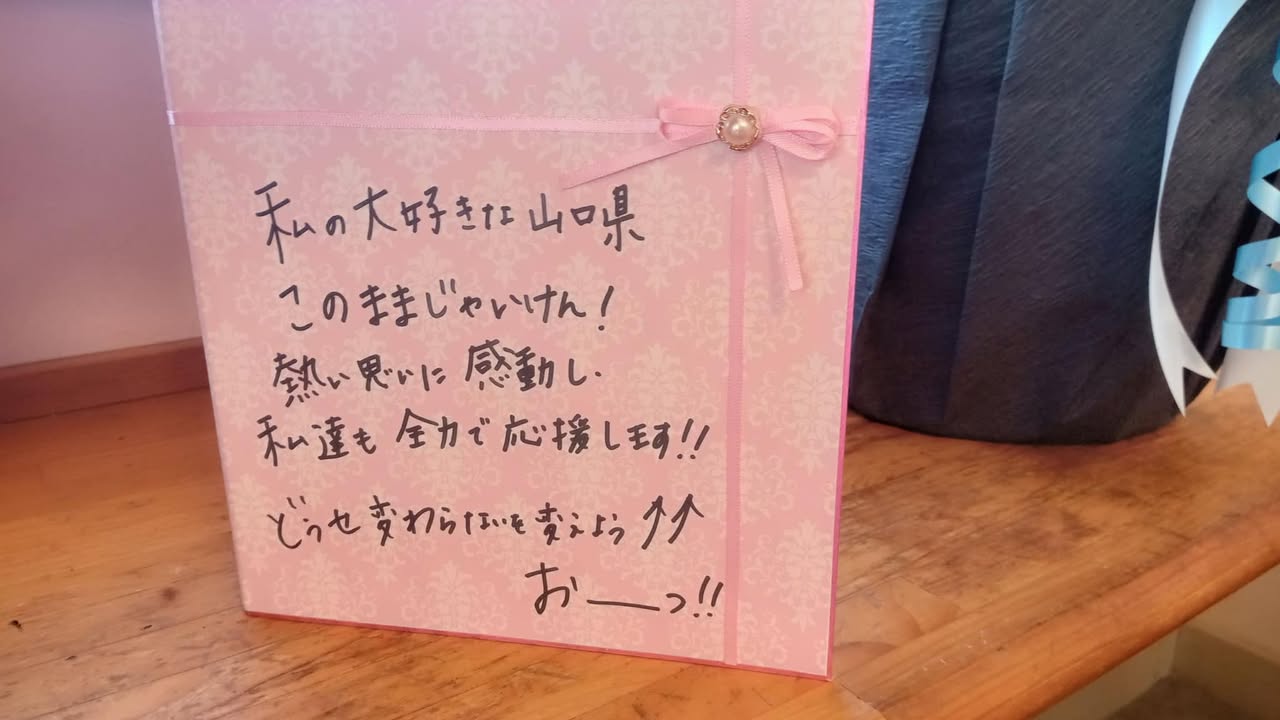 私の大好きな山口県
このままじゃいけん!
熱い思いに感動し、
私達も全力で応援します!!
どうせ変わらないを変えよう↑↑
おーっ!!